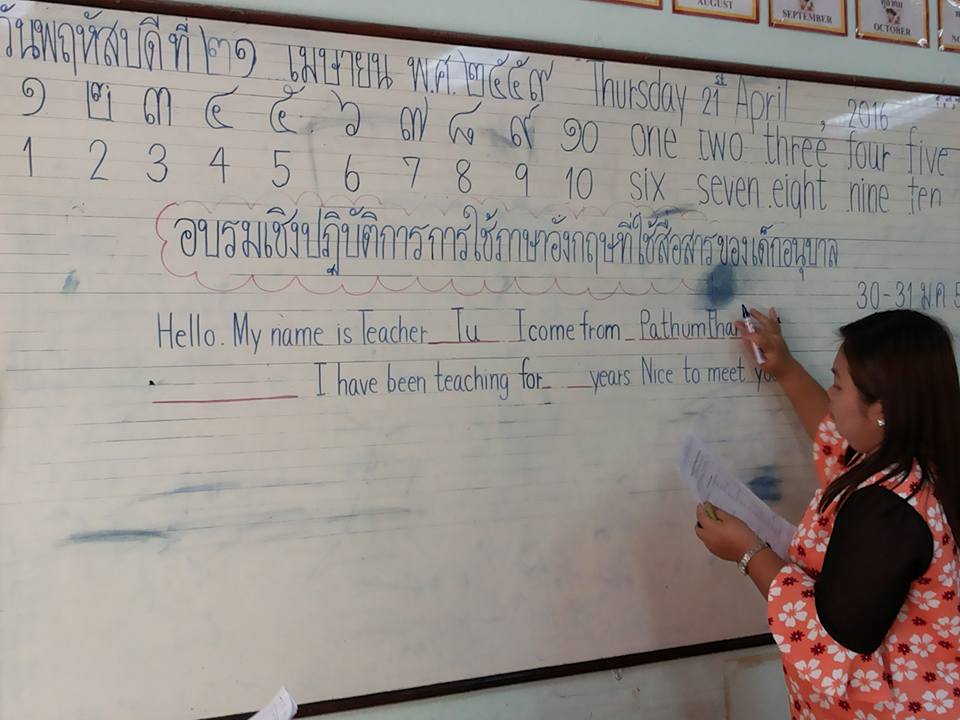 AUGUST
SEPTEMBER
ตุลาคม
OCTOBER
วันพฤหัสบดีที่ ๒๑ เมษายน พ.ศ ๒๕๕๙ Thursday 21st April, 2016
๑ ๒ ๓ ๔ ๕ ๖ ๗ ๘ ๙ ๑๐ one two three four five
1 2 3 4 5 6 7 8 9 10 six seven eight nine ten
อบรมเชิงปฏิบัติการการใช้ภาษาอังกฤษที่ใช้สื่อสารของเด็กอนุบาล
30-31 มค 5
Hello. My name is Teacher Tu I come from PathumThan
I have been teaching for years Nice to meet